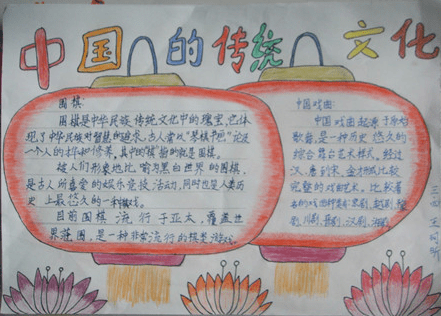 中国的传统文化
围棋:
围棋是中华民族传统文化中的瑰宝,它体
现了中华民族对智慧的追求,古人常以"琴棋书画"论及
一个人的才华和修养,其中的"棋"指的就是围棋。
被人们形象地比喻为黑白世界的围棋,
是古人所喜爱的娱乐竞技活动,同时也是人类历
史上最悠久的一种棋戏。
目前围棋流行于亚太,覆盖世
界范围,是一种非常流行的棋类游戏。
中国戏曲:
中国戏曲起源于原始
歌舞,是一种历史悠久的
综合舞台艺术样式。经过
汉、唐到宋、金才形成比较
完整的戏曲艺术,比较著
名的戏曲种类有:京剧、越剧、
川剧、